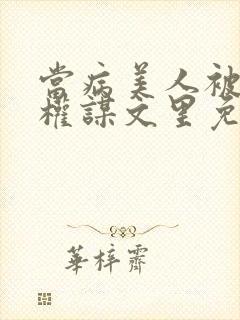 當病美人被
權謀文里免
華梓霽